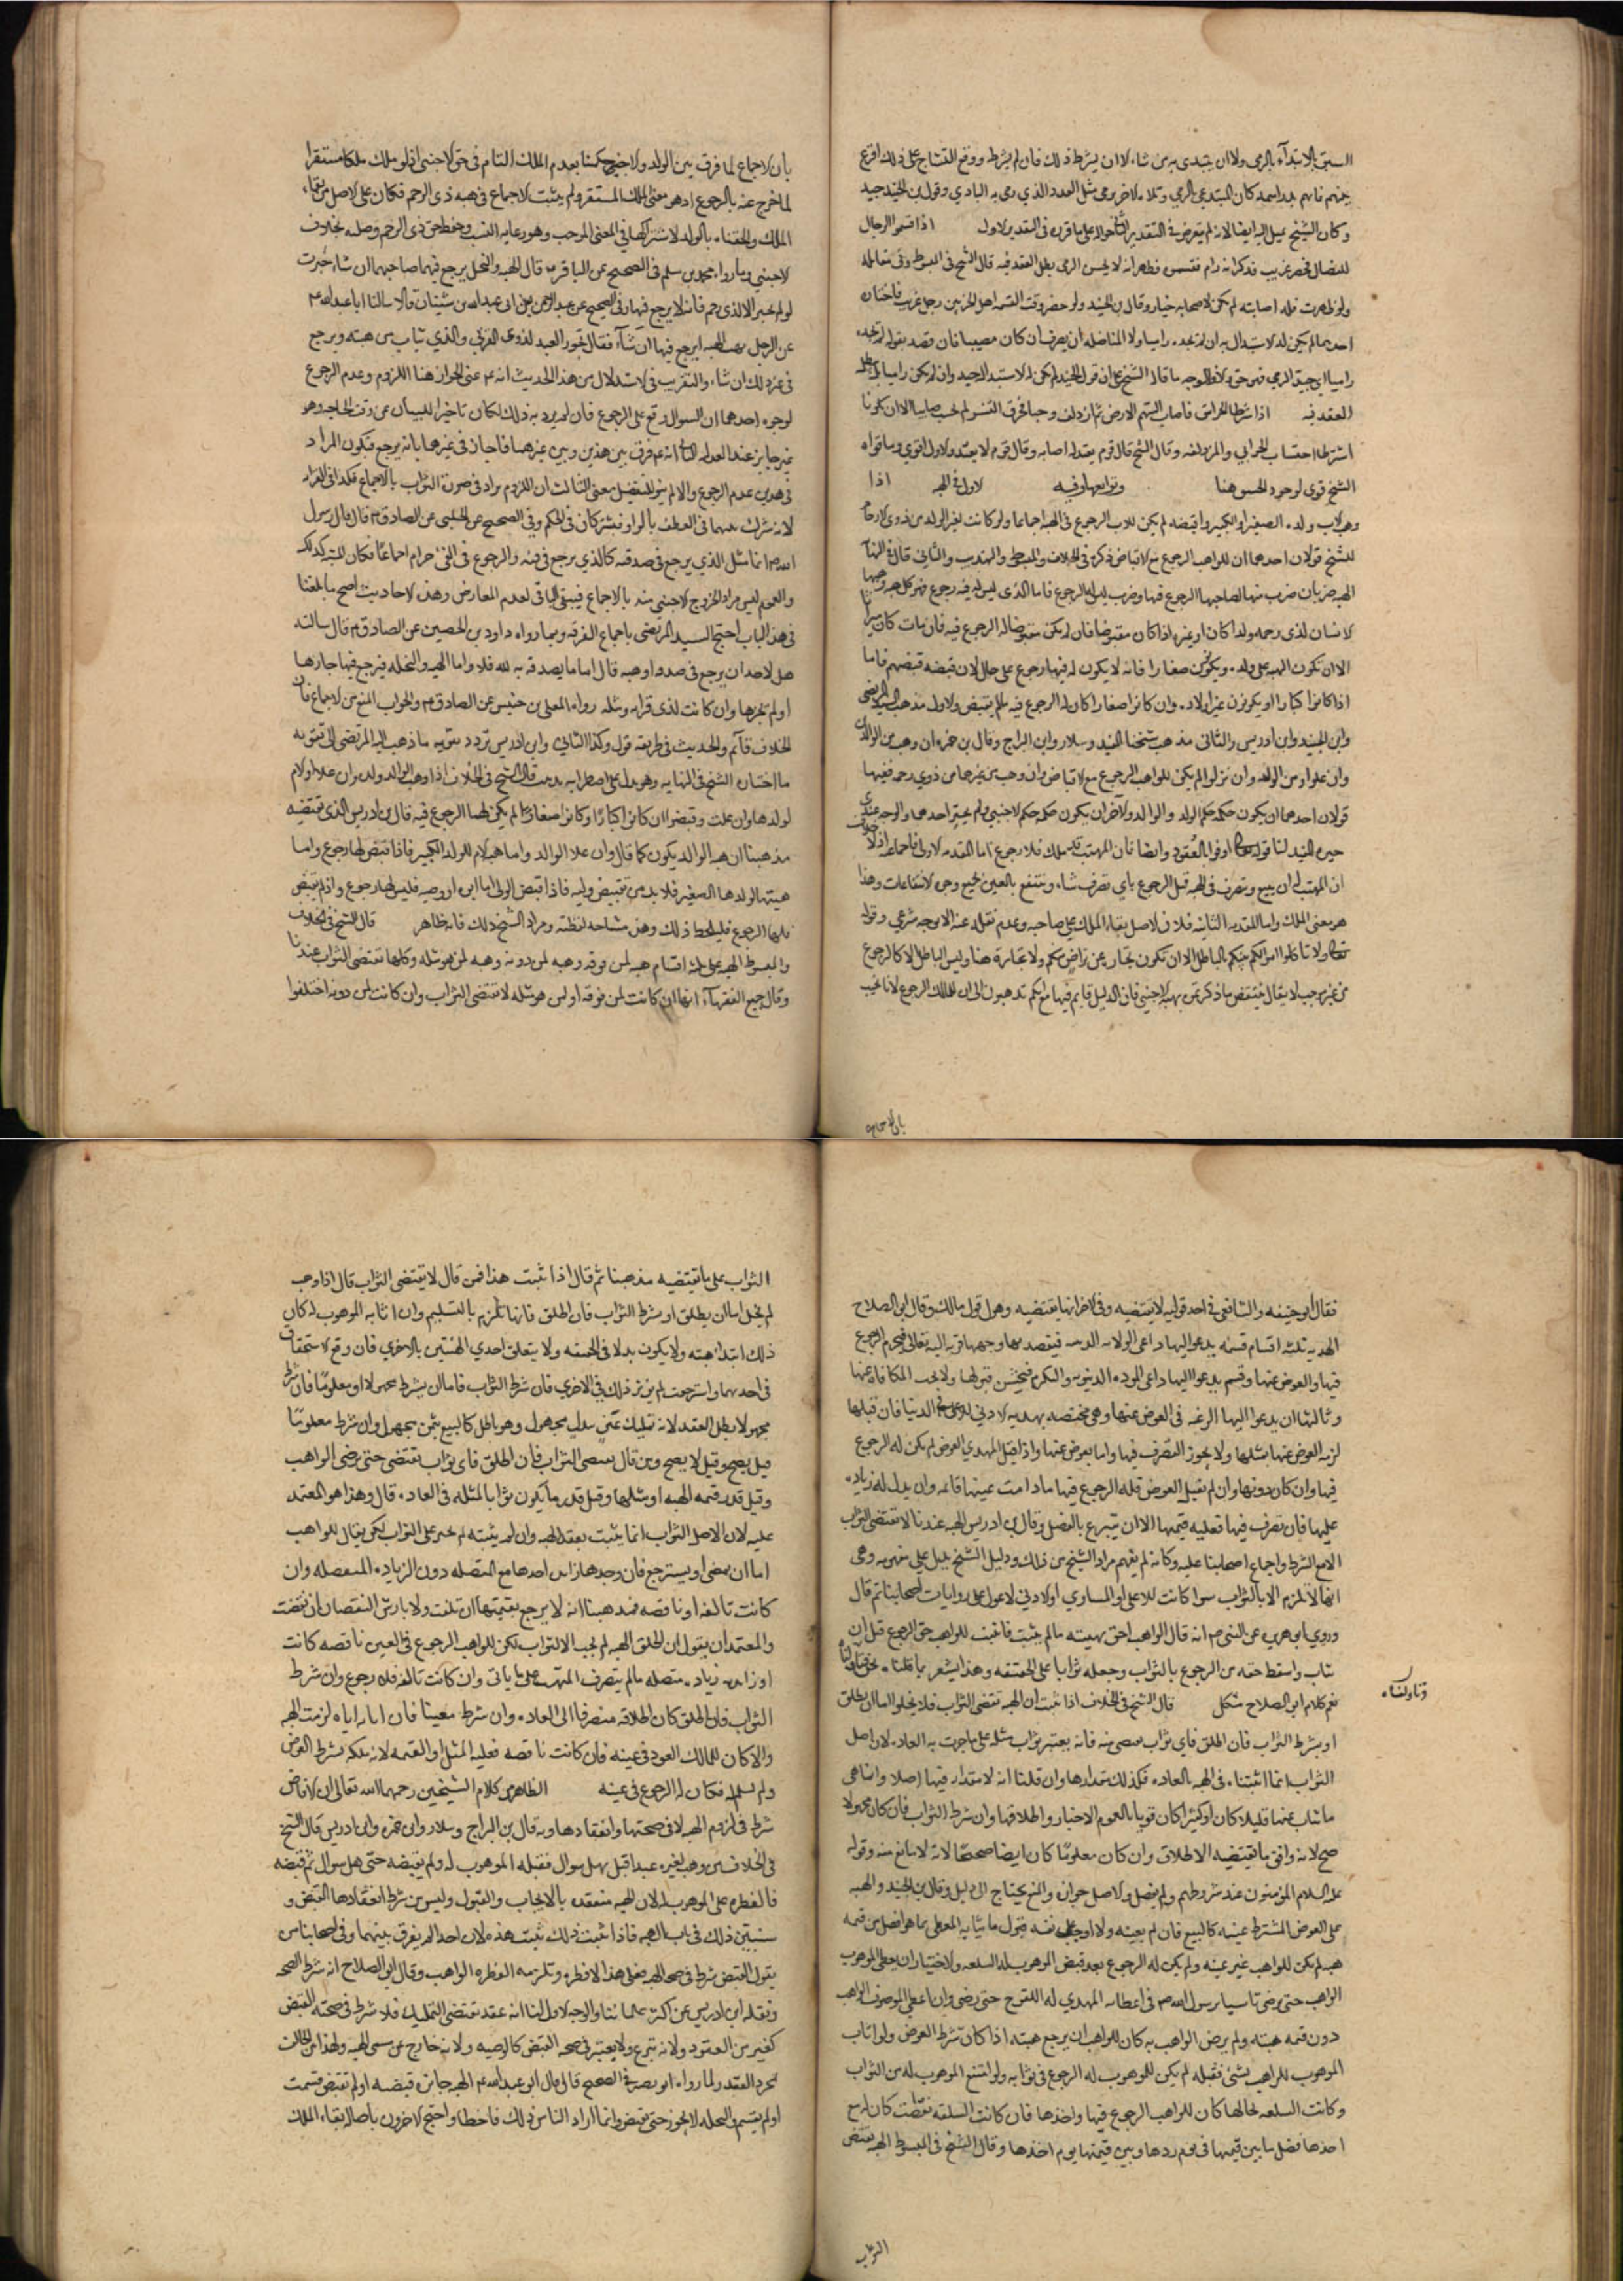 السبق بالابتداء بالرمي ولا ان يبتدي من شاء الا ان يشرط ذلك فان لم يشرط ووقع التشاح على ذلك اقرع
بينهم
وكان الشيخ يميل اليه ايضا لانه لم يتعرض في التقدير الثاني في التقدير الاول اذا قسموا الرجال
للنضال فحضر غريب فذكر انه رام فقسموه فظهر انه لا يحسن الرمي بطل العقد فيه قال الشيخ في المبسوط وفي مقابله
العقد فيه اذا شرطا الخواسق فاصاب السهم الارض ثم ازدلف
اشترطا احتساب الحوابي والمزدلفه وقال الشيخ قال قوم يعتد له اصابه وقال قوم لا يعتد والاول اقوى وما قواه
الشيخ قوي لوجود الخسق هنا وتوابعها وفيه الاول في الهبه اذا
وهب الاب ولده الصغير او الكبير واقبضه لم يكن للاب الرجوع في الهبه اجماعا ولو كانت لغير الولد من ذوي الارحام
للشيخ قولان احدهما ان للواهب الرجوع مع الاقباض ذكره في الخلاف والمبسوط والتهذيب والثاني قال في النهاية
الهبه ضربان ضرب منها لصاحبها الرجوع فيها وضرب ليس له الرجوع فاما الذي ليس له فيه رجوع فهو كل هبه وهبها
الانسان لذي رحمه ولدا كان او غيره اذا كان مقبوضا فان لم يكن مقبوضا له الرجوع فيه فان مات كان ميراثا
الا ان تكون الهبه على ولده ويكونون صغارا فانه لا يكون له فيها رجوع على حال لان قبضه قبضهم فاما
اذا كانوا كبارا او يكونون غير اولاده وان كانوا صغارا كان له الرجوع فيه ما لم يقبض والاول مذهب السيد المرتضى
وابن الجنيد وابن ادريس والثاني مذهب شيخنا المفيد وسلار وابن البراج وقال بن حمزه ان وهب من الوالدين
وان علوا او من الولد وان نزلوا لم يكن للواهب الرجوع مع الاقباض وان وهب من غيرهما من ذوي رحمه ففيها
قولان احدهما ان يكون حكمه حكم الولد والوالد والاخر ان يكون حكمه حكم الاجنبي ولم يخير احدهما والوجه عندي
ان المتهب له ان يبيع ويتصرف في الهبه قبل الرجوع باي تصرف شاء وينتفع بالعين بجميع وجوه الانتفاعات وهذا
هو معنى الملك واما المقدمه الثانيه فلان الاصل بقاء الملك على صاحبه وعدم نقله عنه الا بوجه شرعي وقوله
تعالى ولا تاكلوا اموالكم بينكم بالباطل الا ان تكون تجارة عن تراض منكم ولا تجارة هنا وليس الباطل الا كالرجوع
من غير موجب لا يقال ينتقض ما ذكرتم بهبه الاجنبي فان الدليل قايم فيها مع انكم تذهبون الى ان للمالك الرجوع لانا نجيب
بان الاجماع
بان الاجماع لما فرق بين الولد والاجنبي حكمنا بعدم الملك التام في حق الاجنبي اذ لو ملك ملكا مستقرا
لما خرج عنه بالرجوع اذ هو معنى الملك المستقر ولم يثبت الاجماع في هبه ذي الرحم فكان على الاصل من بقاء
الملك والحقناه بالولد لاشتراكهما في المعنى الموجب وهو رعايه النسب وحفظ حق ذي الرحم وصله بخلاف
الاجنبي وما رواه محمد بن مسلم في الصحيح عن الباقر قال الهبه والنحل يرجع فيهما صاحبهما ان شاء حيزت
او لم تحز الا لذي رحم فانه لا يرجع فيها وفي الصحيح عن عبد الرحمن بن ابي عبد الله بن سنان قالا سالنا ابا عبد الله عم
عن الرجل يهب الهبه ايرجع فيها ان شاء فقال تجوز الهبه لذوي القربى والذي يثاب من هبته ويرجع
في غير ذلك ان شاء والتقريب في الاستدلال من هذا الحديث انه عم عنى الجواز هنا اللزوم وعدم الرجوع
لوجوه احدهما ان السوال وقع على الرجوع فان لم يرد به ذلك لكان تاخيرا للبيان عن وقت الحاجه وهو
غير جايز عند العدليه الثاني انه عم فرق بين هذين وبين غيرهما فاجاز في غيرهما بانه يرجع فيكون المراد
في هذين عدم الرجوع والا لم يبق للتفصيل معنى الثالث ان اللزوم مراد في صورة الثواب بالاجماع فكذا في القرابه
لانه شرك بينهما في العطف بالواو فيشتركان في الحكم وفي الصحيح عن الحلبي عن الصادق عم قال قال رسول
الله صم انما مثل الذي يرجع في صدقته كالذي يرجع في قيئه والرجوع في القئ حرام اجماعا فكان
والعموم ليس مراد الخروج الاجنبي منه بالاجماع فيبقى الباقي لعدم المعارض وهذه الاحاديث اصح ما بلغنا
في هذا الباب احتج السيد المرتضى باجماع الفرقه وبما رواه داود بن الحصين عن الصادق عم قال سالته
هل لاحد ان يرجع في صدقه او هبه قال اما ما تصدق به لله فلا واما الهبه والنحله فيرجع فيها حازها
او لم يحزها وان كانت لذي قرابه ومثله رواه المعلى بن خنيس عن الصادق عم والجواب المنع من الاجماع فان
الخلاف قائم والحديث في طريقه قول وكذا الثاني وابن ادريس تردد بتقويه ما ذهب اليه المرتضى الى تقويه
ما اختاره الشيخ في النهايه وهو يدل على اضطرابه قال الشيخ في الخلاف اذا وهب الوالد لولده وان علا او الام
لولدها وان علت وقبضوا ان كانوا كبارا او كانوا صغارا لم يكن لهما الرجوع فيه قال بن ادريس الذي يقتضيه
مذهبنا ان هبه الوالد يكون كما قال وان علا الوالد واما هبه الام للولد الكبير فاذا قبض ليس لها رجوع واما
هبتها لولدها الصغير فلا بد من تقبيض وليه فاذا قبض الولي اما ابوه او وصيه فليس لها رجوع واذا لم يقبض
فلها الرجوع فليلحظ ذلك وهذه مشاحه لفظيه ومراد الشيخ ذلك فانه ظاهر قال الشيخ في الخلاف
والمبسوط الهبه على ثلثه اقسام هبه لمن فوقه وهبه لمن دونه وهبه لمن هو مثله وكلها تقتضي الثواب عندنا
وقال جميع الفقهاء انها ان كانت لمن فوقه او لمن هو مثله لا تقتضي الثواب وان كانت لمن دونه اختلفوا
فقال ابو حنيفه والشافعي في احد قوليه لا يقتضيه وفي الاخر انها يقتضيه وهو قول مالك وقال ابو الصلاح
الهديه ثلثه اقسام قسم يدعو اليها داعي الولايه الدينيه فيقصد بها وجهها قربه اليه تعالى فيحرم الرجوع
فيها والعوض عنها وقسم يدعو اليها داعي الموده الدنيويه والتكرم فيحسن قبولها ولا يجب المكافاه عنها
وثالثها ان يدعو اليها الرغبه في العوض عنها وهي مختصه بهديه الادنى للاعلى في الدنيا فان قبلها
لزمه العوض عنها بمثلها ولا يجوز التصرف فيها ولما يعوض عنها واذا قبل المهدي العوض لم يكن له الرجوع
فيها وان كان دونها وان لم يقبل العوض فله الرجوع فيها ما دامت عينها قائمه وان بذل له زياده
عليها فان تصرف فيها فعليه قيمتها الا ان يتبرع بالفضل وقال بن ادريس الهبه عندنا لا تقتضي الثواب
الا مع الشرط واجماع اصحابنا عليه وكانه لم يفهم مراد الشيخ من ذلك ودليل الشيخ يدل على مفهومه وهي
انها لا تلزم الا بالثواب سوا كانت للاعلى او المساوي او الادنى لاعول على روايات اصحابنا ثم قال
وروى ابو هريره عن النبي صم انه قال الواهب احق بهبته ما لم يثبت منها فاثبت للواهب حق الرجوع قبل ان
يثاب واسقط حقه من الرجوع بالثواب وجعله ثوابا على الحقيقه وهذا يشعر بما قلناه نحن
وتاولناه
نعم كلام ابو الصلاح مشكل قال الشيخ في الخلاف اذا ثبت ان الهبه تقتضي الثواب فلا يخلو اما ان يطلق
او يشرط الثواب فان اطلق فاي ثواب يقتضي منه فانه يعتبر ثواب مثله على ما جرت به العاده لان اصل
الثواب انما اثبتناه في الهبه بالعاده فكذلك مقدارها وان قلنا انه لا مقدار فيها اصلا وانما هي
ما يثاب عنها قليلا كان او كثيرا كان قويا بالعموم الاخبار واطلاقها وان شرط الثواب فان كان مجهولا
صح لانه وافق ما يقتضيه الاطلاق وان كان معلوما كان ايضا صحيحا لانه لا مانع منه وقوله
عليه السلام المؤمنون عند شروطهم ولم يفصل والاصل جوازه والمنع يحتاج الى دليل وقال بن الجنيد والهبه
على العوض المشترط عينه كالبيع فان لم يعينه ولا اوجب على نفسه قبول ما يثابه المعطى بما هو افضل من قيمه
هبه لم يكن للواهب غير عينه ولم يكن له الرجوع بعد قبض الموهوب له السلعه والاختيار ان يعطي الموهوب
الواهب حتى يرضى تاسيا برسول الله صم في اعطائه المهدي له اللقوح حتى رضي وان اعطى الموهوب الواهب
دون قيمه هبته ولم يرض الواهب به كان للواهب ان يرجع هبته اذا كان شرط العوض ولو اثاب
الموهوب للواهب بشئ فقبله لم يكن للموهوب له الرجوع في ثوابه ولو امتنع الموهوب له من الثواب
وكانت السلعه بحالها كان للواهب الرجوع فيها واخذها فان كانت السلعه نقصت كان له مع
اخذها فضل ما بين قيمتها في يوم ردها وبين قيمتها يوم اخذها وقال الشيخ في المبسوط الهبه تقتضي
الثواب
الثواب على ما يقتضيه مذهبنا ثم قال اذا ثبت هذا فمن قال لا يقتضي الثواب قال اذا وهب
لم يخل اما ان يطلق او يشرط الثواب فان اطلق فانها تلزم بالتسليم وان اثابه الموهوب له كان
ذلك ابتداء هبته ولا يكون بدلا في الحقيقه ولا يتعلق احدي الهبتين بالاخري فان وقع الاستحقاق
في احديهما واسترجعت لم يؤثر ذلك في الاخري فان شرط الثواب فاما ان يشرط مجهولا او معلوما فان شرط
مجهولا بطل العقد لانه تمليك عين ببدل مجهول وهو باطل كالبيع بثمن مجهول وان شرط معلوما
قيل يصح وقيل لا يصح ومن قال يقتضي الثواب فان اطلق فاي ثواب يقتضي حتى يرضى الواهب
وقيل قدر قيمه الهبه او مثلها وقيل قدر ما يكون ثوابا لمثله في العاده قال وهذا هو المعتمد
عليه لان الاصل الثواب انما يثبت بعقد الهبه وان لم يثبته لم يجبر على الثواب لكن يقال للواهب
اما ان تمضي او يسترجع فان وجدها زايده اخذها مع المتصله دون الزياده المنفصله وان
كانت تالفه او ناقصه فمذهبنا انه لا يرجع بقيمتها ان تلفت ولا بارش النقصان ان نقصت
والمعتمد ان يقول ان اطلق الهبه لم يجب الا الثواب لكن للواهب الرجوع في العين ناقصه كانت
او زايده زياده متصله ما لم يتصرف المتهب على ما ياتي وان كانت تالفه فلا رجوع وان شرط
الثواب فان اطلق كان اطلاقه منصرفا الى العاده وان شرط معينا فان اثابه اياه لزمت الهبه
والا كان للمالك العود في عينه فان كانت ناقصه فعليه المثل او القيمه لانه ملكه بشرط العوض
ولم يسلم له فكان له الرجوع في عينه الظاهر من كلام الشيخين رحمهما الله تعالى ان الاقباض
شرط في لزوم الهبه لا في صحتها وانعقادها وبه قال بن البراج وسلار وابن حمزه وابن ادريس قال الشيخ
في الخلاف من وهب لغيره عبدا قبل يهل سوال فقبله الموهوب له ولم يقبضه حتى هل سوال ثم قبضه
فالفطره على الموهوب له لان الهبه منعقده بالايجاب والقبول وليس من شرط انعقادها القبض و
سنبين ذلك في باب الهبه فاذا ثبت ذلك ثبت هذه لان احدا لم يفرق بينهما وفي اصحابنا من
يقول القبض شرط في صحه الهبه فعلى هذا لا فطره ويلزمه الفطره الواهب وقال ابو الصلاح انه شرط الصحه
ونقله ابن ادريس عن اكثر علمائنا والوجه الاول لنا انه عقد يقتضي التمليك فلا شرط في صحته القبض
كغيره من العقود ولانه تبرع ولا يعتبر في صحه القبض كالوصيه ولانه خارج عن مسمى الهبه ولهذا
مجرد العقد ولما رواه ابو بصير في الصحيح قال قال ابو عبد الله عم الهبه جائزه قبضه او لم تقبض قسمت
او لم يقسم والنحله لا يجوز حتى تقبض وانما اراد الناس ذلك فاخطاوا احتج الاخرون باصاله بقاء الملك